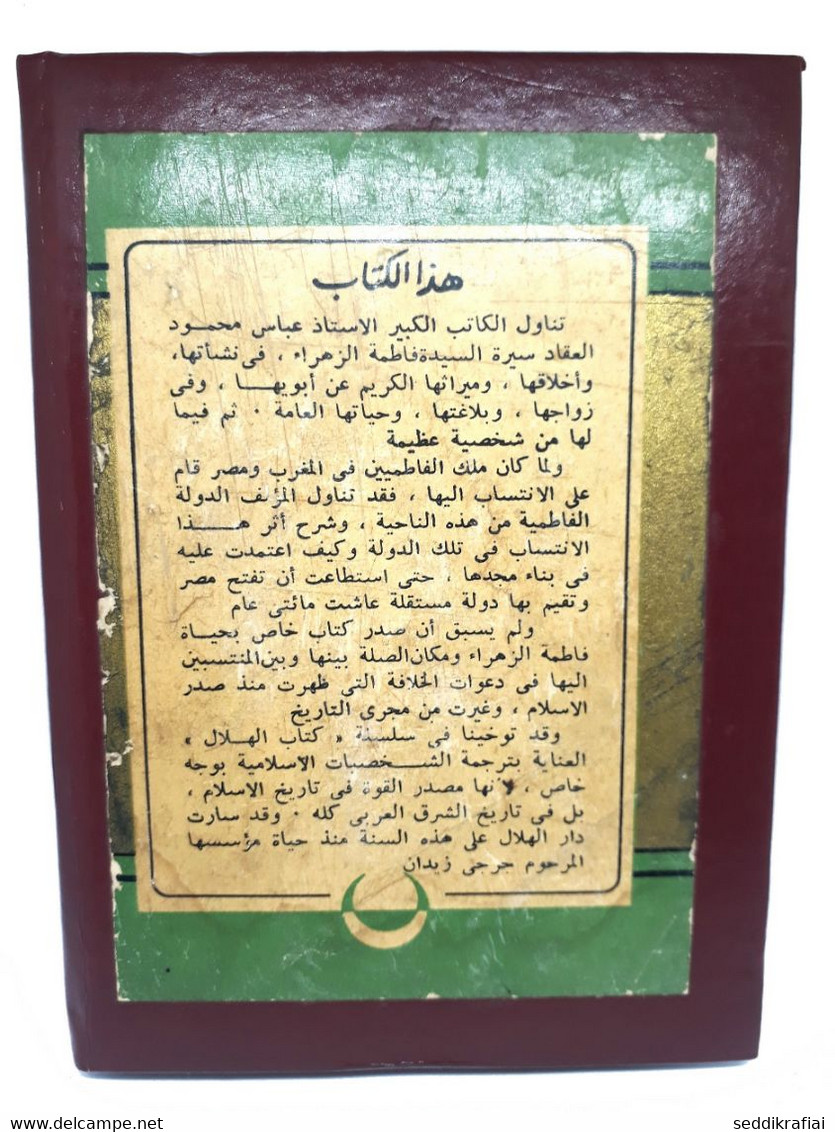 هذا الكتاب
تناول الكاتب الكبير الاستاذ عباس محمـود
العقاد سيرة السيدة فاطمة الزهراء ، فى نشأتها،
وأخلاقها ، وميراثها الكريم عن أبويهـا ، وفى
زواجها ، وبلاغتها ، وحياتها العامة ٠ ثم فيما
لها من شخصية عظيمة
ولما كان ملك الفاطميين فى المغرب ومصر قام
على الانتساب اليها ، فقد تناول المؤلف الدولة
الفاطمية من هذه الناحية ، وشرح أثر هـــذا
الانتساب فى تلك الدولة وكيف اعتمدت عليه
فى بناء مجدها ، حتى استطاعت أن تفتح مصر
وتقيم بها دولة مستقلة عاشت مائتى عام
ولم يسبق أن صدر كتاب خاص بحياة
فاطمة الزهراء ومكان الصلة بينها وبين المنتسبين
اليها فى دعوات الخلافة التى ظهرت منذ صدر
الاسلام ، وغيرت من مجرى التاريخ
وقد توخينا فى سلسلة « كتاب الهلال »
العناية بترجمة الشـخصيات الاسلامية بوجه
خاص ، لانها مصدر القوة فى تاريخ الاسلام ،
بل فى تاريخ الشرق العربى كله ٠ وقد سارت
دار الهلال على هذه السنة منذ حياة مؤسسها
المرحوم جرجى زيدان
delcampe.net
seddikrafiai